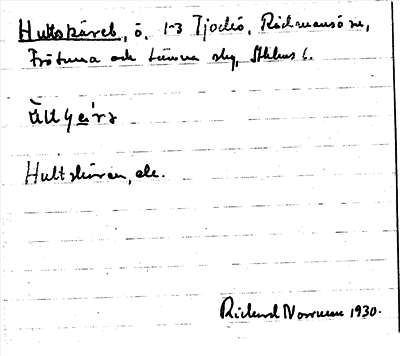 Hultskäret, ö, 1-3 Tjockö, Rådmansö sn,
Frötuna och Länna skg, Sthlms l.
Hultskären, ek.
Rickard Norreen 1930.